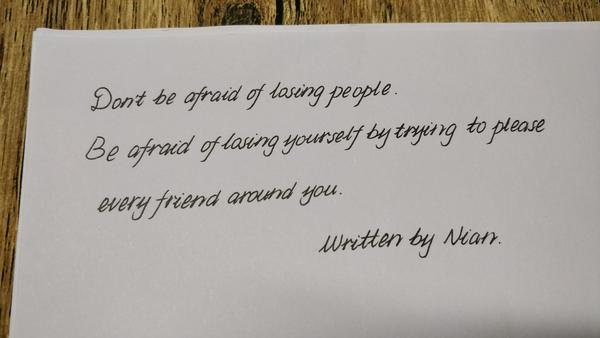 Don't be afraid of losing people.
Be afraid of losing yourself by trying to please
every friend around you.
Written by Nian.